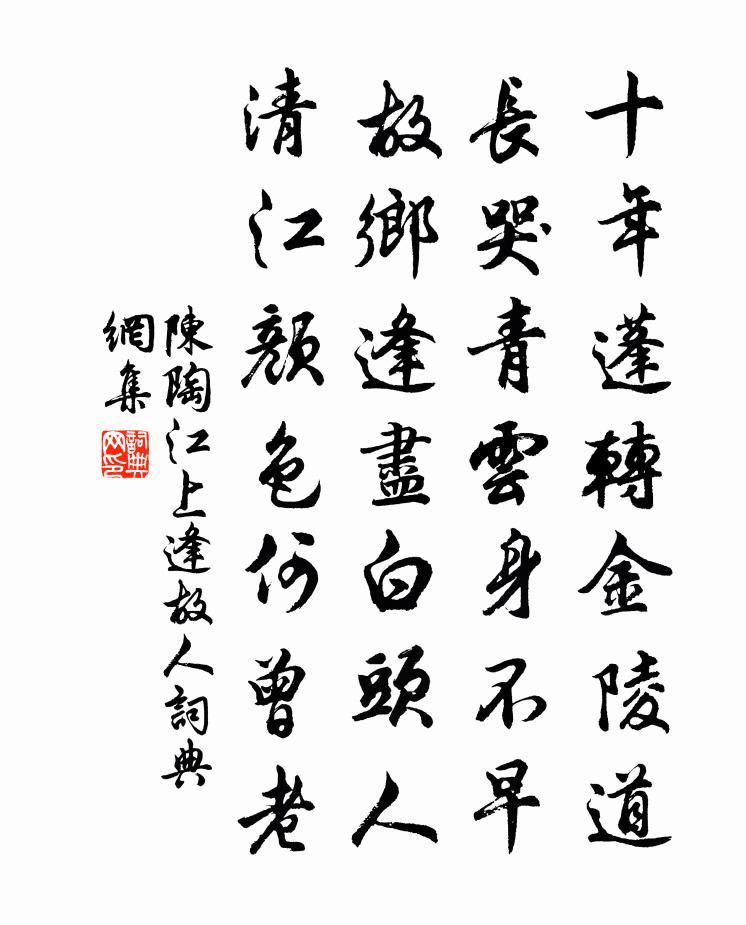 十年蓬轉金陵道
長哭青雲身不早
故鄉逢盡白頭人
清江顏色何曾老
陳陶江上逢故人詞典
網集
詞典
网印